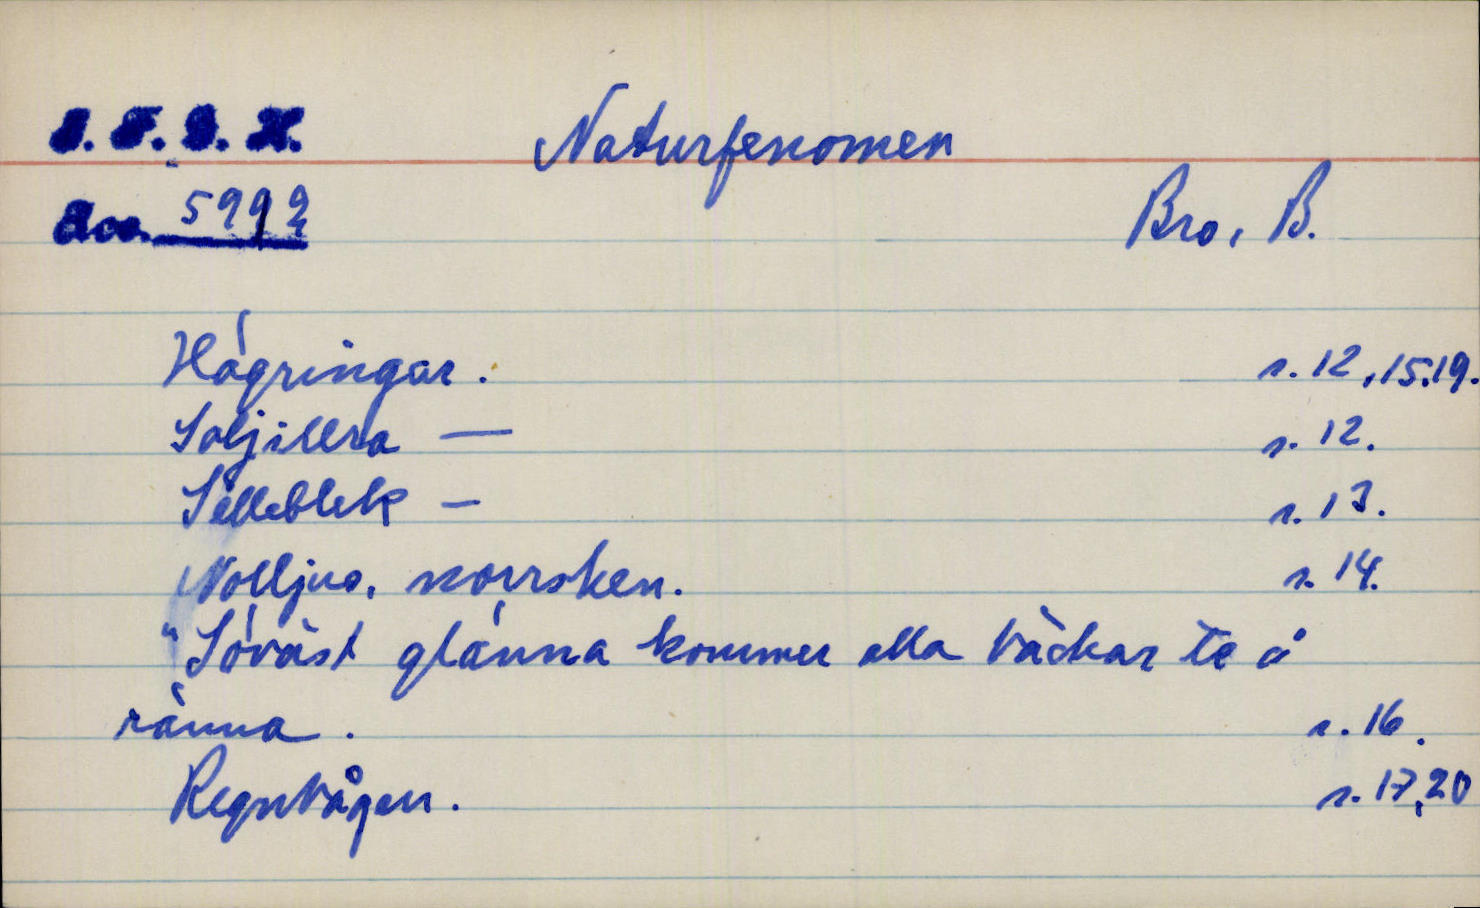 I. F. G. H.
Naturfenomen
Acc. 5992
Bro, B.
Hågringar. s. 12, 15, 19.
Soljillra — s. 12.
Silleblek — s. 13.
Nolljus, norrsken. s. 14.
"Söväst glänna kommer alla bäckar te å
ränna. s. 16.
Regnbågen. s. 17, 20